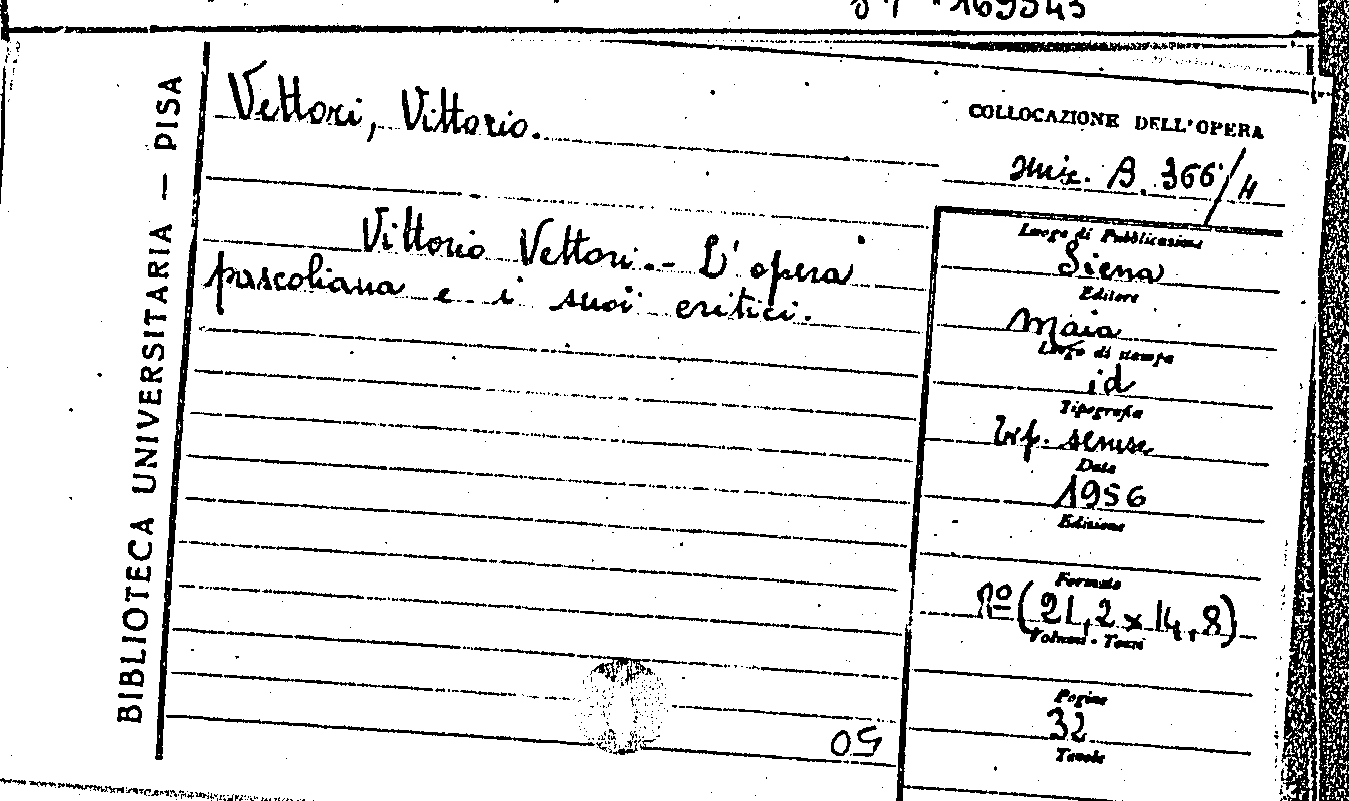 BIBLIOTECA UNIVERSITARIA — PISA
Vettori, Vittorio.
Vittorio Vettori. - L'opera
pascoliana e i suoi critici.
COLLOCAZIONE DELL'OPERA
Misc. B. 366/4
Luogo di Pubblicazione
Siena
Editore
Maia
Luogo di stampa
id
Tipografia
senese
Data
1956
Edizione
Formato
(21,2 x 14,8)
Volumi - Tomi
Pagine
32
Tavole
50